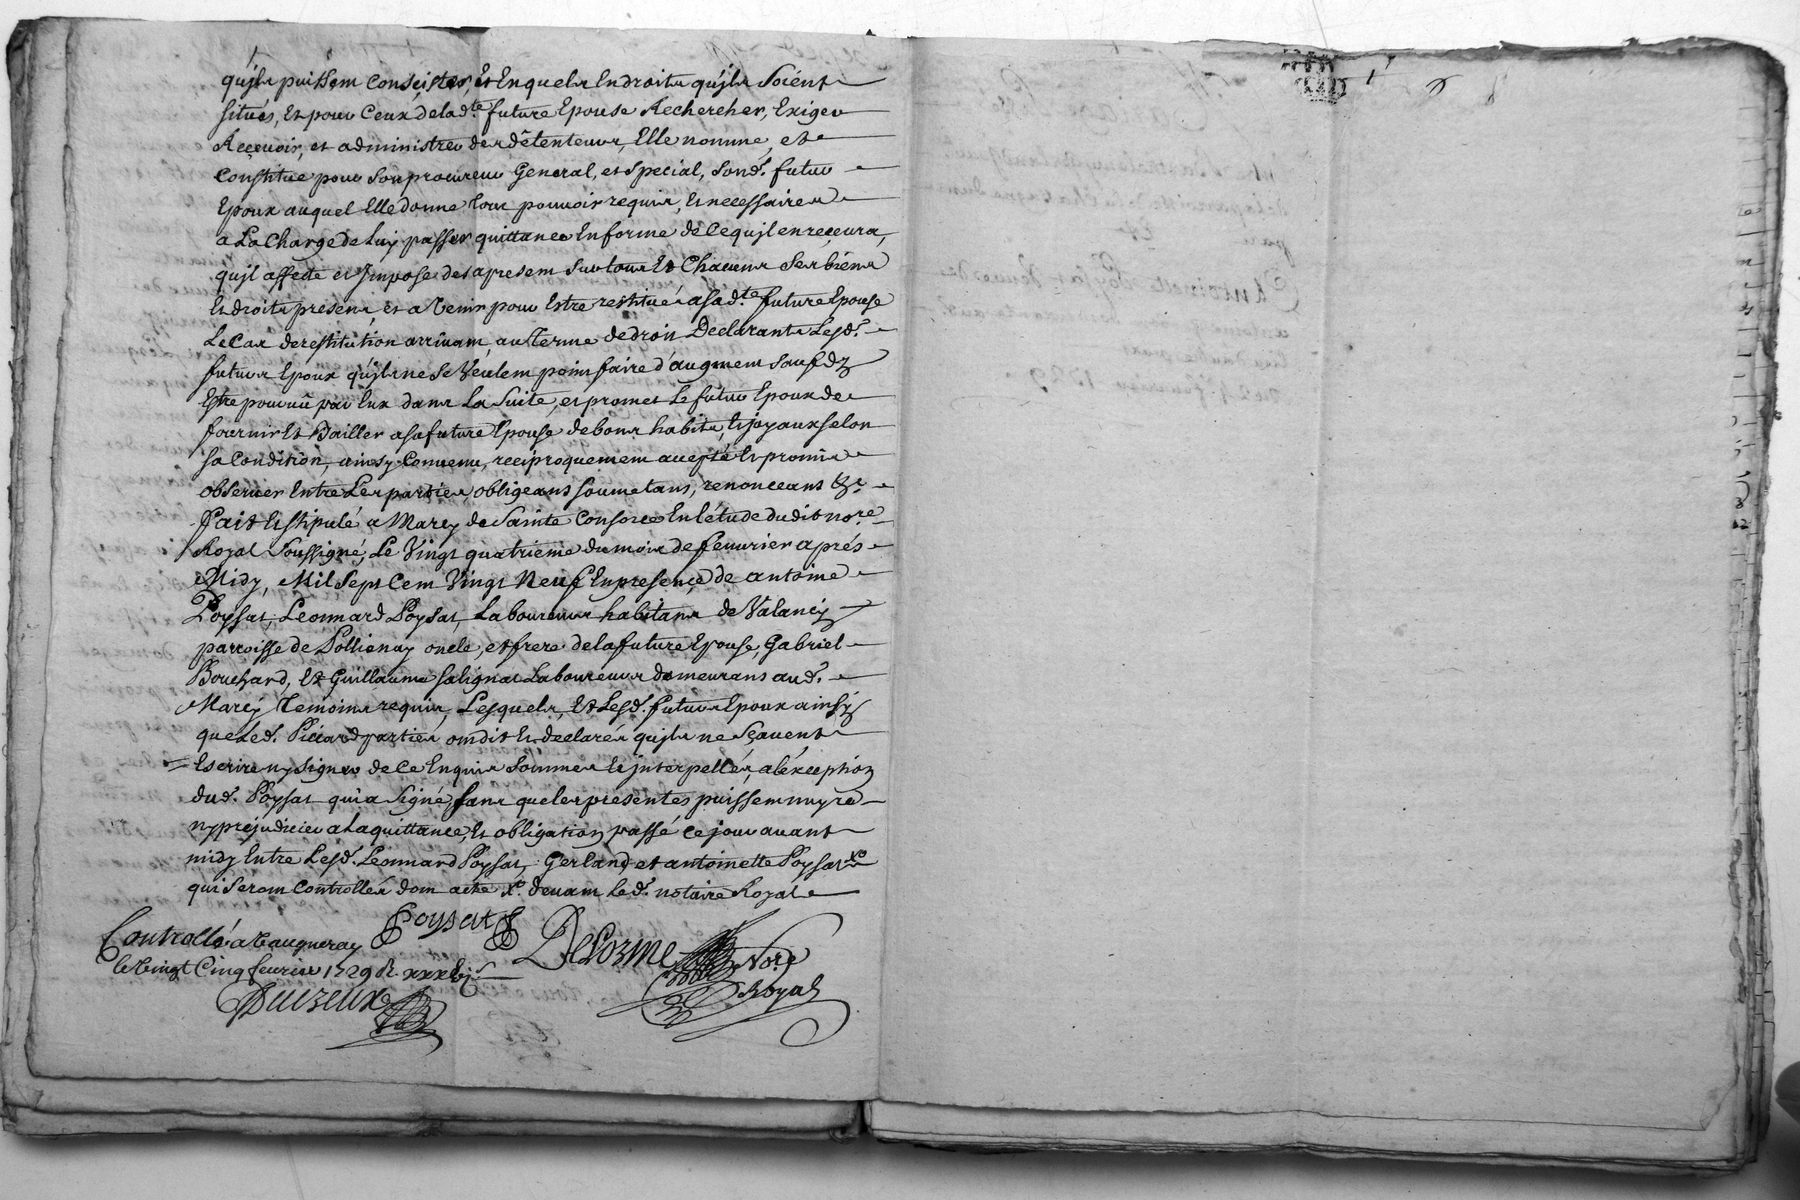 qu'jls puissent conseister, Et En quels Endroits qu'jls Soient
situés, Et pour Ceux de lad.te future Epouse Rechercher, Exiger
Reçevoir, et administrer des détenteurs, Elle nomme, et
constitue pour Son procureur General, et Special, Sond.t futur
Epoux auquel Elle donne tour pouvoir requis, Et necessaires
a La Charge de Luy passer quittance En forme de Ce qu'jl en reçeura,
qu'jl affecte et Jmpose des apresent Sur tous Et Chacuns Ses biens
Et droits presens, et a Venir pour Estre restitués a sad.te future Epouse
Le Cas de restitution arriuant, au Terme de droit Declarants Lesd.s
futurs Epoux qu'jls ne Se Veulent point faire d'augment sauf d'y
Estre pouruû par Eux dans La Suite, et promet Le futur Epoux de
fournir Et Bailler a sa future Epouse de bons habits, Et joyaux selon
sa Condition, ainsy Convenu, reciproquement accepté Et promis
observer Entre Les parties, obligeans soumetans, renonceans &c
Fait Et Stipulé a Marcy de Sainte Consorce En l'étude dudit no.re
Royal Soussigné, Le Vingt quatrieme du mois de feuurier aprés
Midy, Mil Sept Cent Vingt Neuf En presençe de antoine
Poysat, Leonnard Poysat, Laboureurs habitans de Valancy
parroisse de Pollionay oncle, et frere de la future Epouse, Gabriel
Bouchard, Et Guillaume salignat Laboureurs demeurans aud.t
Marcy Temoins requis, Lesquels, Et Lesd. futurs Epoux ainsy
que Led.t Piccard parties ont dit Et declarés qu'jls ne sçauent
Escrire ny Signer de Ce Enquis Sommés Et jnterpellés, a l'éxception
dud.t Poysat qui a Signé, sans que les presentes puissent nuyre
ny prejudicier a La quittance, Et obligation passé Ce jour auant
midy Entre Lesd.s Leonnard Poysat, Gerland, et antoinette Poysat
qui Seront Controllés dont acte &c. deuant Led.t notaire Royal
Poysat
Controllé a Vaugneray
le Vingt Cinq feurier 1729 R.
DeLorme Nore
Royal